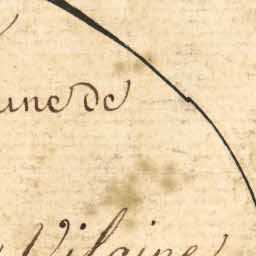 une de
Vilaine